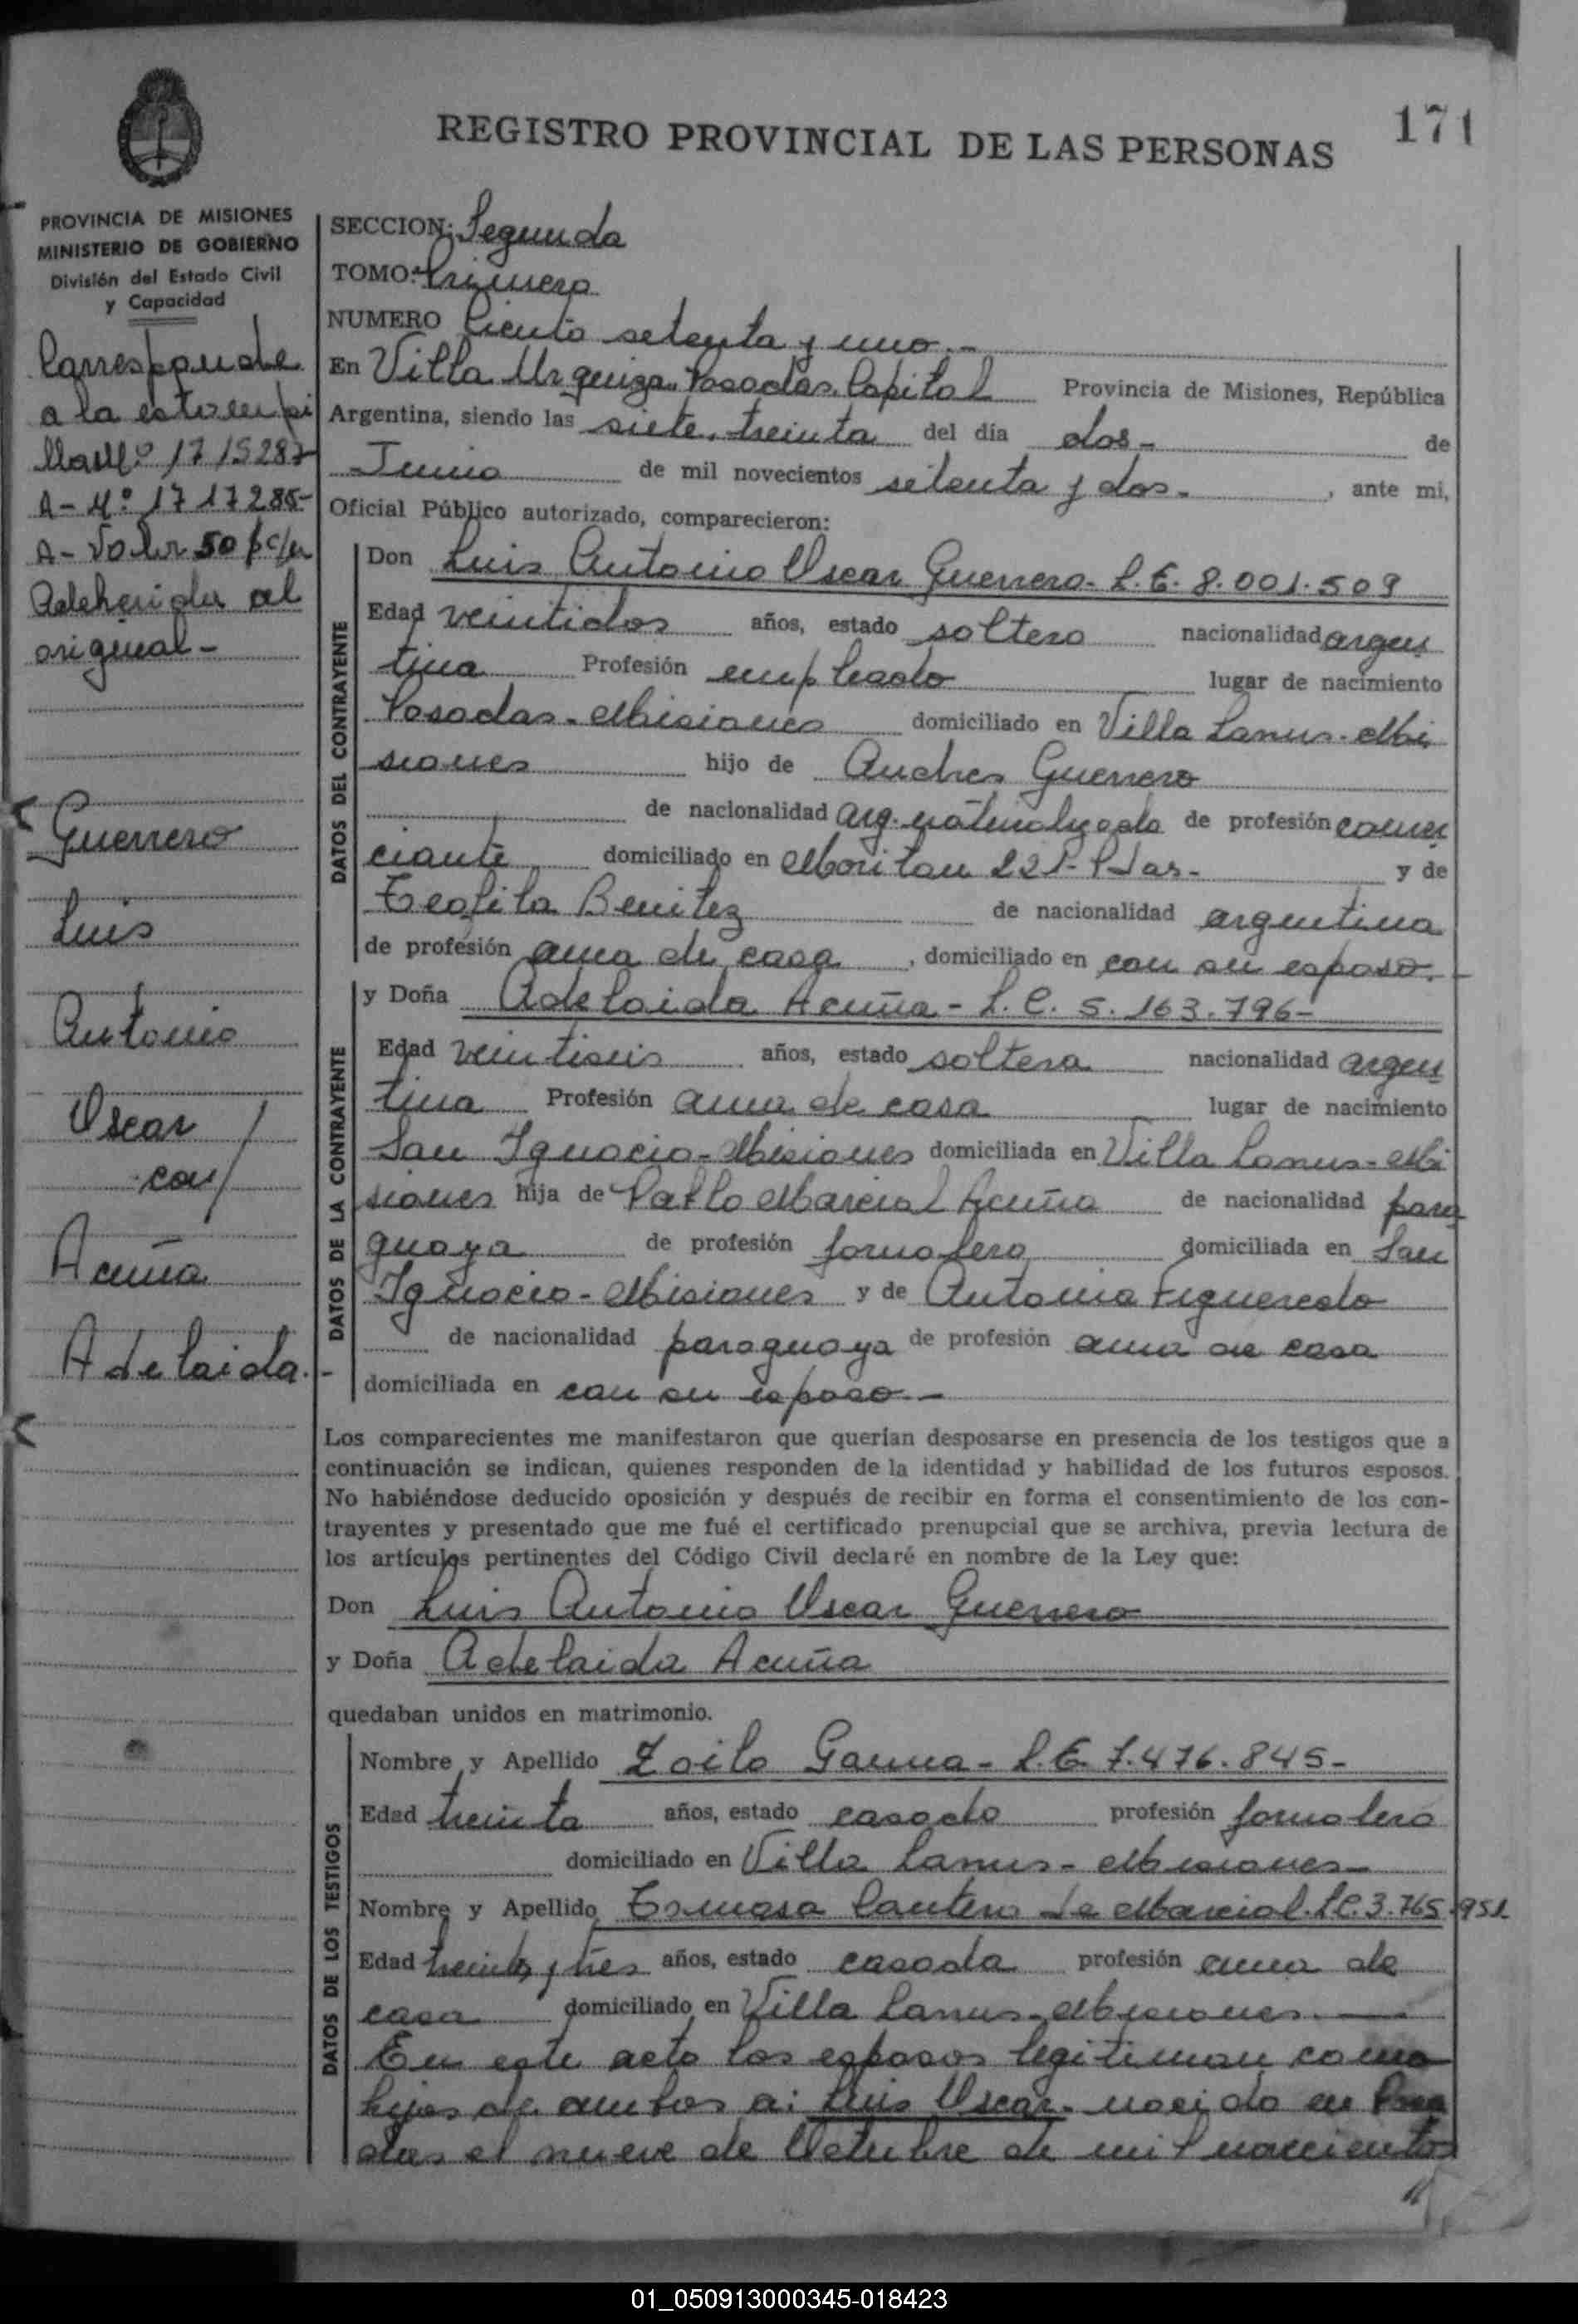 REGISTRO PROVINCIAL DE LAS PERSONAS
171
PROVINCIA DE MISIONES
MINISTERIO DE GOBIERNO
División del Estado Civil
y Capacidad
Corresponde
a la estampi
lla Nº 1715287
A-Nº 1717285-
A-Valor 50 pc/u
Adherida al
original-
Guerrero
Luis
Antonio
Oscar
con/
Acuña
Adelaida.-
SECCION: Segunda
TOMO: Primero
NUMERO Ciento setenta y uno.-
En Villa Urquiza. Posadas. Capital Provincia de Misiones, República
Argentina, siendo las siete, treinta del día dos- de
Junio de mil novecientos setenta y dos-, ante mi,
Oficial Público autorizado, comparecieron:
DATOS DEL CONTRAYENTE
Don Luis Antonio Oscar Guerrero- L.E. 8.001.509
Edad veintidos años, estado soltero nacionalidad argen
tina Profesión empleado lugar de nacimiento
Posadas-Misiones domiciliado en Villa Lanus-Mi
siones hijo de Andres Guerrero
de nacionalidad arg. naturalizado de profesión comer
ciante domiciliado en 221-Pdas- y de
Teofila Benitez de nacionalidad argentina
de profesión ama de casa, domiciliado en con su esposo.-
DATOS DE LA CONTRAYENTE
y Doña Adelaida Acuña- L.C. 5.163.796-
Edad veintiseis años, estado soltera nacionalidad argen
tina Profesión ama de casa lugar de nacimiento
San Ignacio-Misiones domiciliada en Villa Lanus-Mi
siones hija de Pablo Marcial Acuña de nacionalidad para
guaya de profesión jornalero domiciliada en San
Ignacio-Misiones y de Antonia Figueredo
de nacionalidad paraguaya de profesión ama de casa
domiciliada en con su esposo.-
Los comparecientes me manifestaron que querían desposarse en presencia de los testigos que a
continuación se indican, quienes responden de la identidad y habilidad de los futuros esposos.
No habiéndose deducido oposición y después de recibir en forma el consentimiento de los con-
trayentes y presentado que me fué el certificado prenupcial que se archiva, previa lectura de
los artículos pertinentes del Código Civil declaré en nombre de la Ley que:
Don Luis Antonio Oscar Guerrero
y Doña Adelaida Acuña
quedaban unidos en matrimonio.
DATOS DE LOS TESTIGOS
Nombre y Apellido Zoilo Gauna- L.E. 7.476.845-
Edad treinta años, estado casado profesión jornalero
domiciliado en Villa Lanus-Misiones-
Nombre y Apellido Tomasa de Marcial. L.C. 3.765.951
Edad treinta y tres años, estado casada profesión ama de
casa domiciliado en Villa Lanus-Misiones.-
En este acto los esposos legitiman como
hijos de ambos a: Luis Oscar- nacido en Posa
das el nueve de Octubre de mil novecientos
01_050913000345-018423